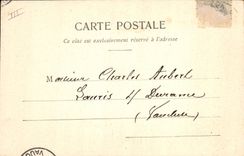 CARTE POSTALE
Ce côté est exclusivement réservé à l'adresse
Monsieur Charles Aubert
Lauris s/ Durance
(Vaucluse)
VAUC